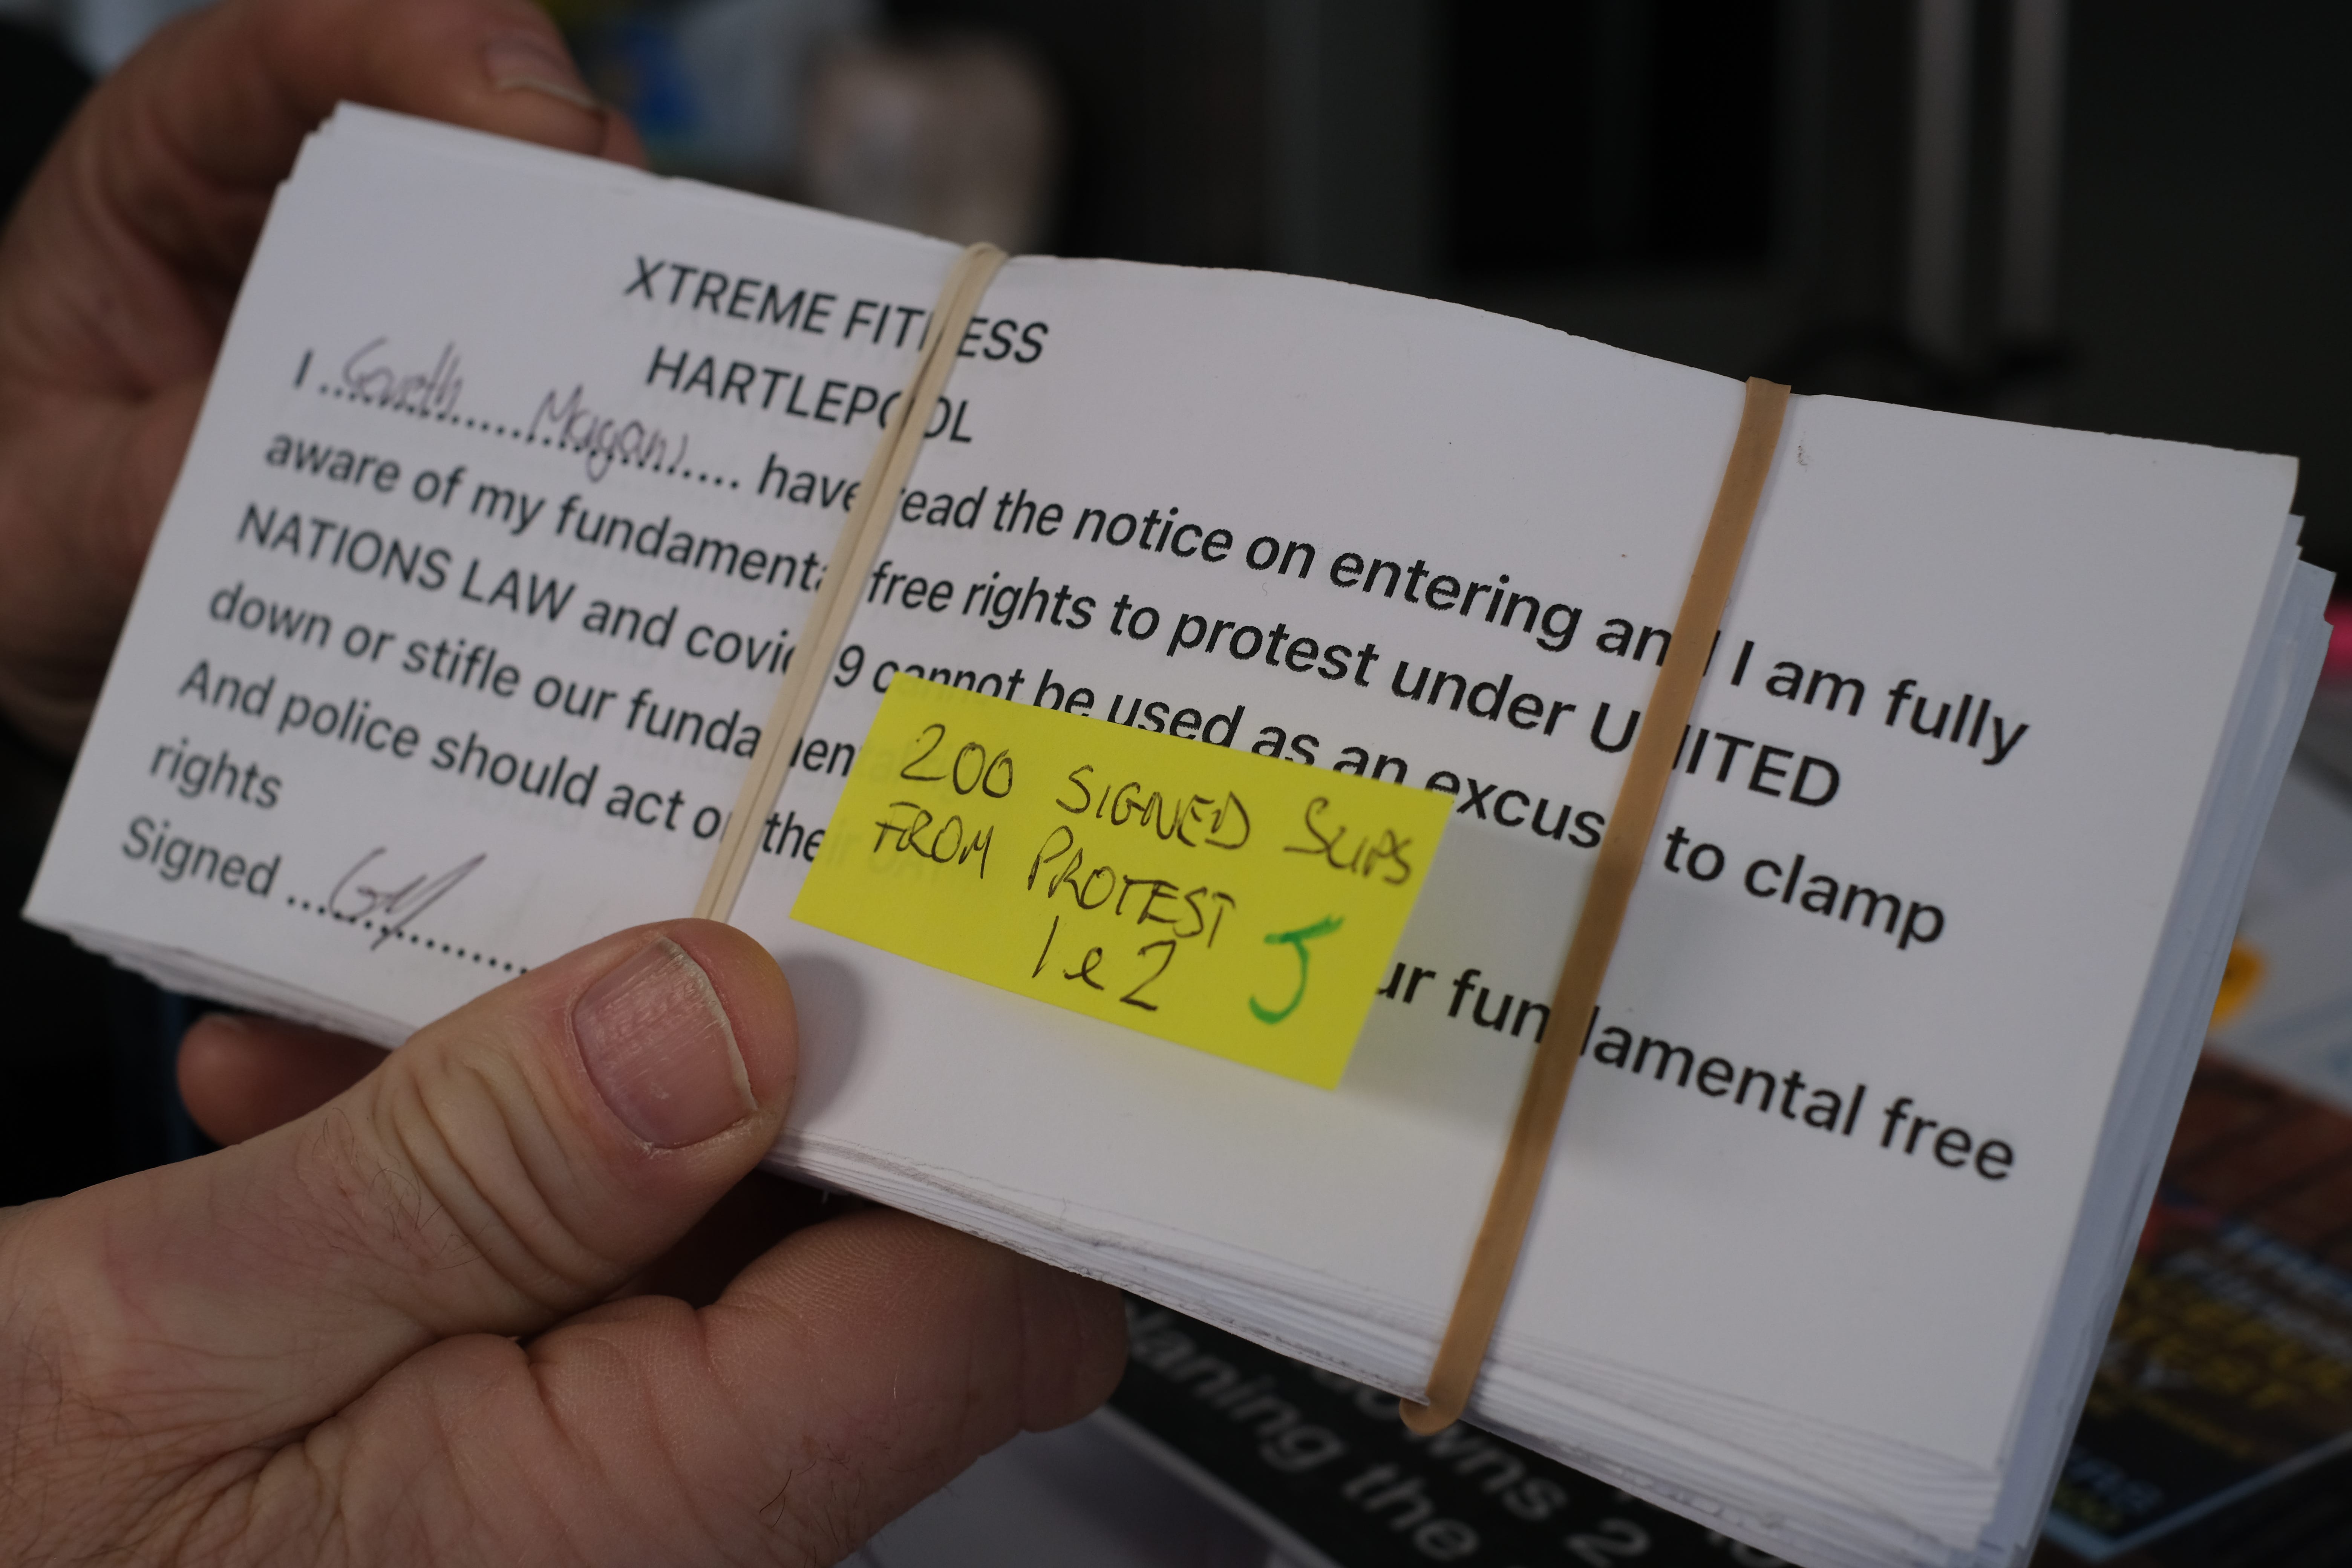 XTREME FITNESS
HARTLEPOOL
I .. Gareth Magan ..... have read the notice on entering and I am fully
aware of my fundamental free rights to protest under UNITED
NATIONS LAW and covid 9 cannot be used as an excuse to clamp
down or stifle our fundamental ur fundamental free
And police should act on their
rights
Signed ...
200 SIGNED SLIPS
FROM PROTEST
1 e 2 5
owns 2
laning the